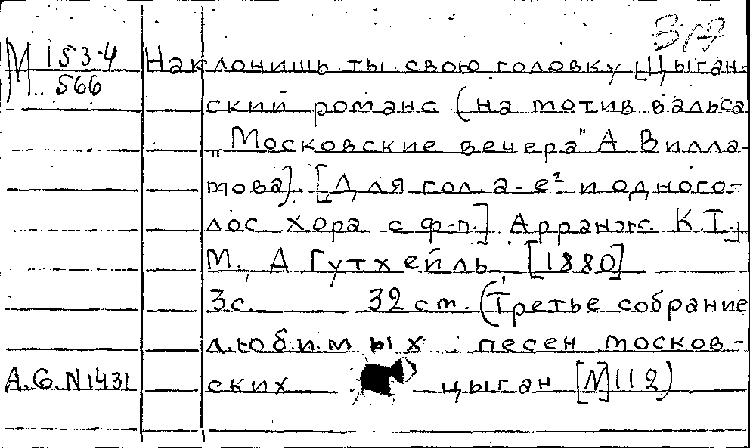 М 153-4
566
Наклонишь ты свою головку [Цыган-
ский романс (на мотив вальса
„Московские вечера" А Вилла-
това)]. [Для гол. a-e² и одного-
лос хора с ф-п.] Арранж. К I.
М., А Гутхейль [1880]
3с. 32 cm. (Третье собрание
любимых песен москов-
А.С. N 1431 ских цыган [N] 112)